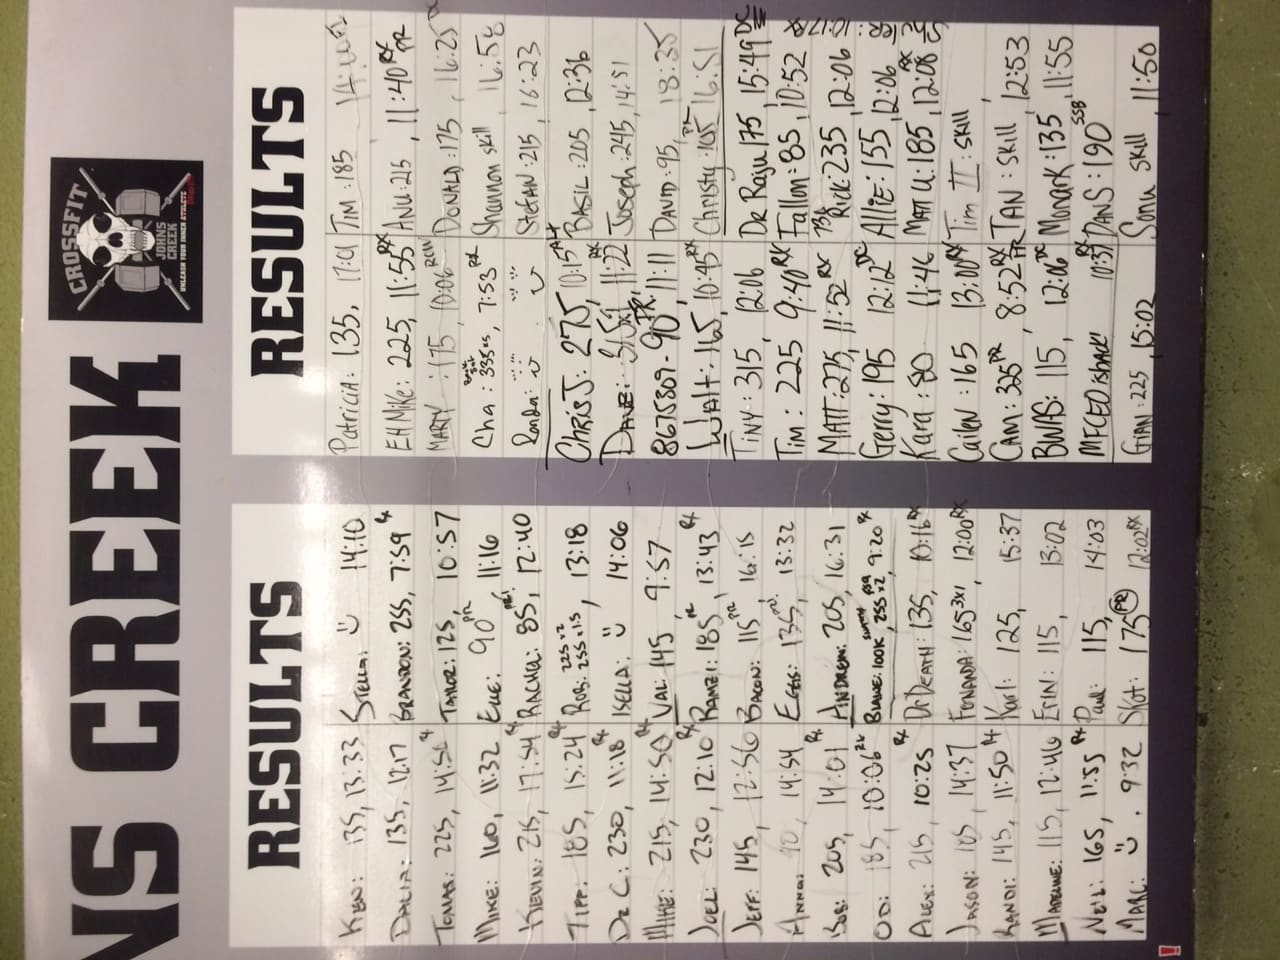 NS CREEK
CROSSFIT
JOHNS
CREEK
UNLEASH YOUR INNER ATHLETE
RESULTS
KEN: 135, 13:33
DALIA: 135, 12:17
TOMAS: 225, 14:56 Rx
MIKE: 160, 11:32
KEVIN: 215, 17:54 Rx
TIPP: 185, 15:24 Rx
DR C: 230, 11:18 Rx
MIKE: 215, 14:50 Rx
JOEL: 230, 12:10 Rx
JEFF: 145, 12:56
ANNA: 90, 14:54
BOB: 205, 14:01 Rx
OD: 185, 10:06 Rx
ALEX: 215, 10:25 Rx
JASON: 185, 14:37
RANDI: 145, 11:50 Rx
MADELINE: 115, 12:46
NEIL: 165, 11:55 Rx
MARC: ü. 9:32
STELLA: ü 14:10
BRANDON: 255, 7:59 Rx
TAYLOR: 125, 10:57
90 PR, 11:16
RACHEL: 85, PR! 12:40
ROB: 225x2 255x1.5, 13:18
ISELLA: ü, 14:06
VAL: 145, 9:57
RAMZI: 185 PR, 13:43 Rx
BACON: 115 PR, 16:15
135, PR!, 13:32
ANDREW: 205, 16:31
BLANE: 100K, 255x2, 9:20 Rx
DR DEATH: 135, 10:16 RX
FERNANDA: 165 3x1, 12:00 RX
Karl: 125, 15:37
ERIN: 115, 13:02
Paul: 115, 14:03
Skot: 175 PR 12:02 RX
RESULTS
Patricia: 135, 17:01
EH Mike: 225, 11:55 RX
MARY: 175, 10:06
Cha: 335 x5, 7:53 RX
Ronda: ü ü
CHRIS J: 275, 10:15
DANE: 315x1, 11:22 RX
8675309 - 90 PR, 11:11
WALT: 165, 10:45 RX
TINY: 315, 12:06
TIM: 225 9:40 RX
MATT: 275, 11:52 RX
Gerry: 195 12:12 DC
Kara: 80 11:46
Cailen: 165 13:00 RX
CAM: 325 PR, 8:52 RX PR
BWRS: 115, 12:06 DC
MFCEO ishau! 10:37 RX
GIAN: 225, 15:02
TIM: 185
ANU: 215, 11:40 RX PR
DONALD: 175, 16:25 DC
Shannon Skill 16:58
STEFAN: 215, 16:23
BASIL: 205, 12:36
Joseph: 245, 14:51
DAVID: 95, 18:35
Christy: 105 PR, 16:51
DR Raju 175, 15:49 DC
Fallon: 85, 10:52
Rick: 235 12:06
Allie: 155, 12:06
Matt U: 185, 12:08 RX
Tim II: Skill,
TAN: Skill, 12:53
Monark: 135, 11:55
DANS: 190 SSB
Sonu Skill 11:50